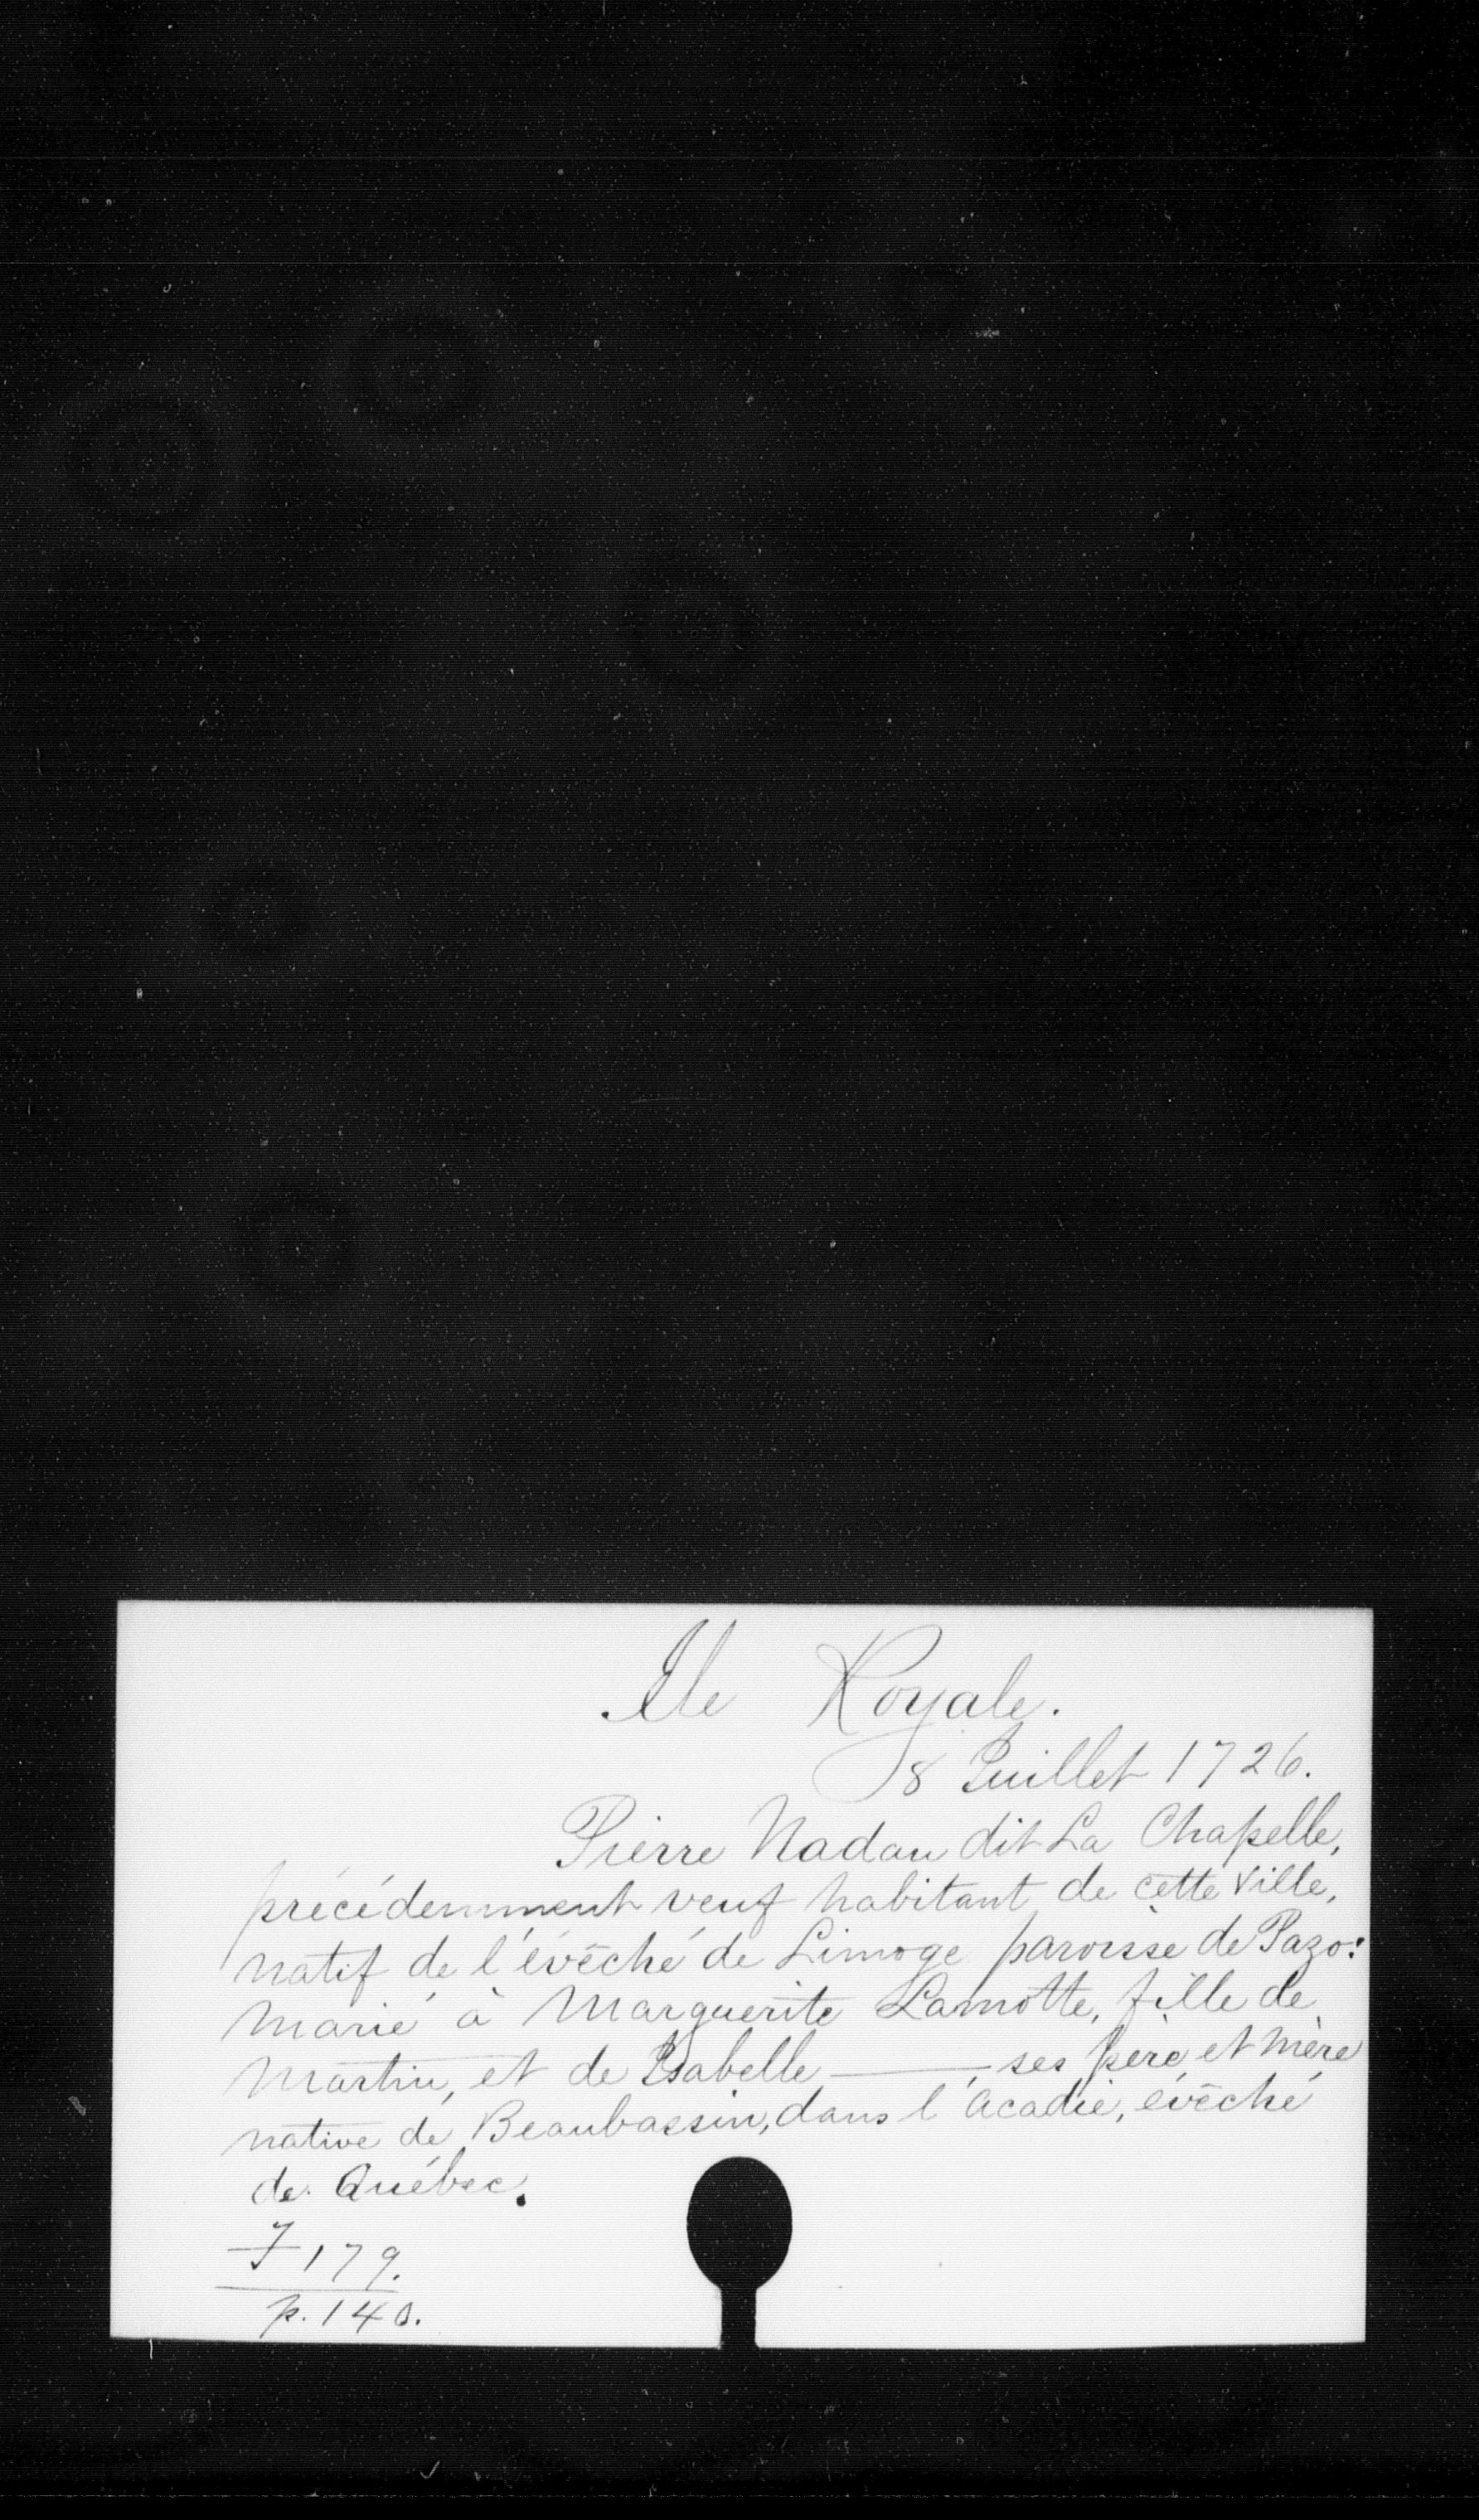 Ile Royale.
8 Juillet 1726.
Pierre Nadau dit La Chapelle,
précédemment veuf habitant de cette ville,
natif de l'évêché de Limoge paroisse de Pazo:
marié à Marguerite Lamotte, fille de
Martin, et de Isabelle ——, ses père et mère
native de Beaubassin, dans l'Acadie, évêché
de Québec.
F 179.
p. 140.